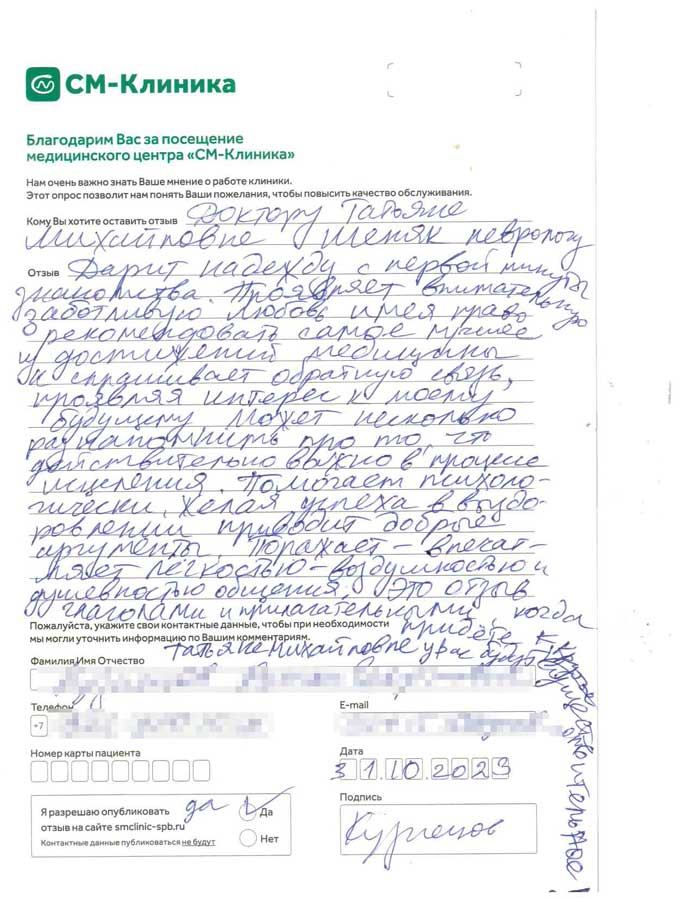 СМ-Клиника
Благодарим Вас за посещение
медицинского центра «СМ-Клиника»
Нам очень важно знать Ваше мнение о работе клиники.
Этот опрос позволит нам понять Ваши пожелания, чтобы повысить качество обслуживания.
Кому Вы хотите оставить отзыв Доктору Татьяне
Михайловне Шеняк неврологу
Отзыв Дарит надежду с первой минуты
знакомства. Проявляет внимательную
заботливую любовь имея право
рекомендовать самое лучшее
из достижений медицины
и спрашивает обратную связь,
проявляя интерес к моему
будущему. Может несколько
раз напомнить про то, что
действительно важно в процессе
исцеления. Помогает психоло-
гически, желая успеха в выздо-
ровлении приводит добрые
аргументы. Поражает – впечат-
ляет лёгкостью – воздушностью и
душевностью общения. Это отзыв
глаголами и прилагательными, когда
Пожалуйста, укажите свои контактные данные, чтобы при необходимости
придёте к
мы могли уточнить информацию по Вашим комментариям.
Татьяне Михайловне у вас будет
существительное!
Фамилия Имя Отчество
Телефон
E-mail
+7
Номер карты пациента
Дата
31.10.2023
Я разрешаю опубликовать да Да
отзыв на сайте smclinic-spb.ru
Контактные данные публиковаться не будут
Нет
Подпись